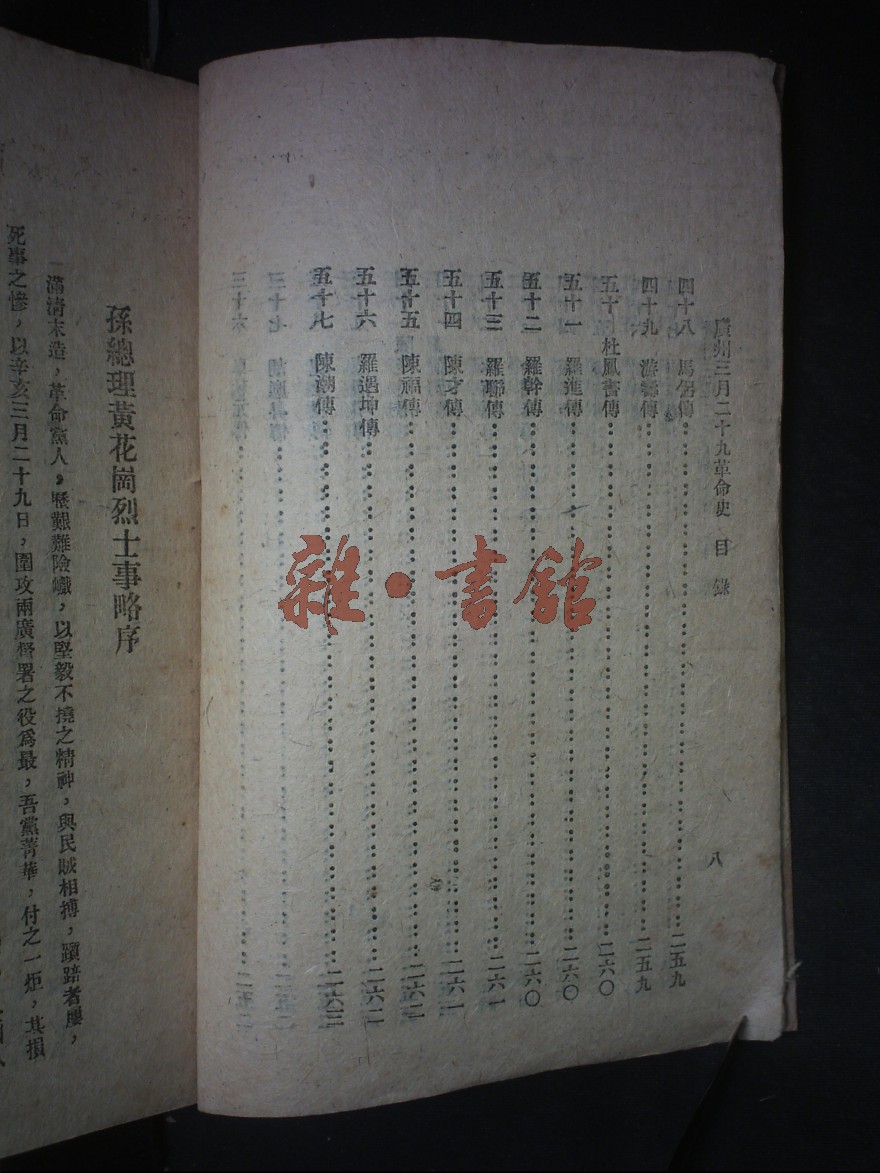 廣州三月二十九革命史 目錄
八
四十八 馬侶傳……二五九
四十九 游壽傳……二五九
五十 杜鳳書傳……二六〇
五十一 羅進傳……二六〇
五十二 羅幹傳……二六〇
五十三 羅聯傳……二六一
五十四 陳才傳……二六一
五十五 陳福傳……二六二
五十六 羅遇坤傳……二六二
五十七 陳潮傳……二六二
三十七
三十六
雜·書館
孫總理黃花崗烈士事略序
滿清末造，革命黨人，歷艱難險巇，以堅毅不撓之精神，與民賊相搏，躓踣者屢，
死事之慘，以辛亥三月二十九日，圍攻兩廣督署之役爲最，吾黨菁華，付之一炬，其損